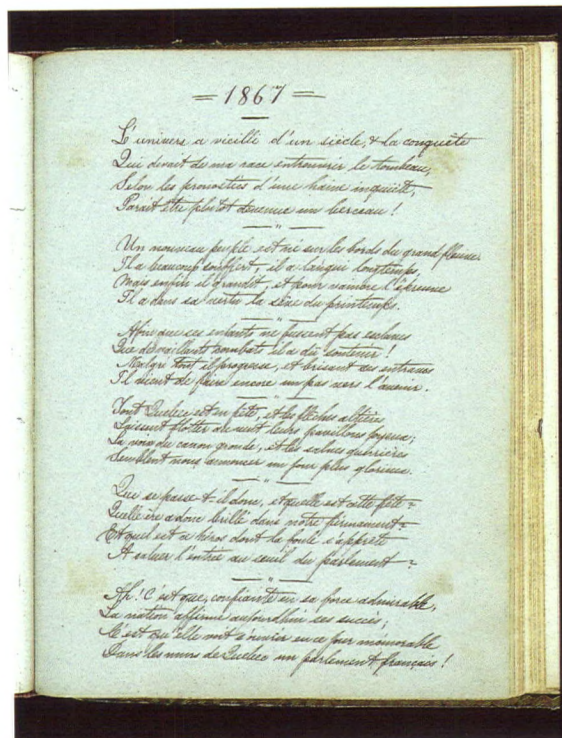 = 1867 =
L'univers a vieilli d'un siècle, & la conquête
Qui devait de ma race entrouvrir le tombeau,
Selon les pronostics d'une haine inquiète,
Parait être plutôt devenue un berceau !
Un nouveau peuple est né sur les bords du grand fleuve
Il a beaucoup souffert, il a langui longtemps,
Mais enfin il grandit, et pour vaincre l'épreuve
Il a dans sa vertu la sève du printemps.
Afin que ses enfants ne fussent pas esclaves
Que de vaillants combats il a dû soutenir !
Malgré tout il progresse, et brisant ses entraves
Il vient de faire encore un pas vers l'avenir.
Tout Québec est en fête, et les flèches altières
Laissent flotter au vent leurs pavillons joyeux ;
La voix du canon gronde, et les salves guerrières
Semblent nous annoncer un jour plus glorieux.
Que se passe-t-il donc, et quelle est cette fête ?
Quelle ère a donc brillé dans notre firmament ?
Et quel est ce héros dont la foule s'apprête
A saluer l'entrée au seuil du parlement ?
Ah ! C'est que, confiante en sa force admirable,
La nation affirme aujourd'hui ses succès ;
C'est qu'elle voit s'ouvrir en ce jour mémorable
Dans les murs de Québec un parlement français !